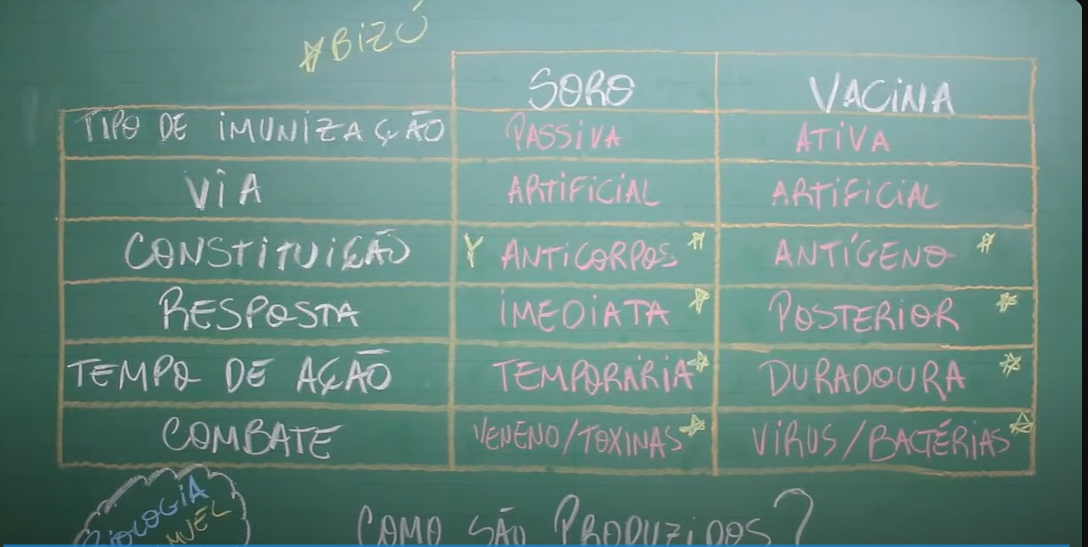 BIZÚ
SORO VACINA
TIPO DE IMUNIZAÇÃO PASSIVA ATIVA
VIA ARTIFICIAL ARTIFICIAL
CONSTITUIÇÃO ANTICORPOS ANTÍGENO
RESPOSTA IMEDIATA POSTERIOR
TEMPO DE AÇÃO TEMPORÁRIA DURADOURA
COMBATE VENENO/TOXINAS VÍRUS/BACTÉRIAS
BIOLOGIA
COMO SÃO PRODUZIDOS?